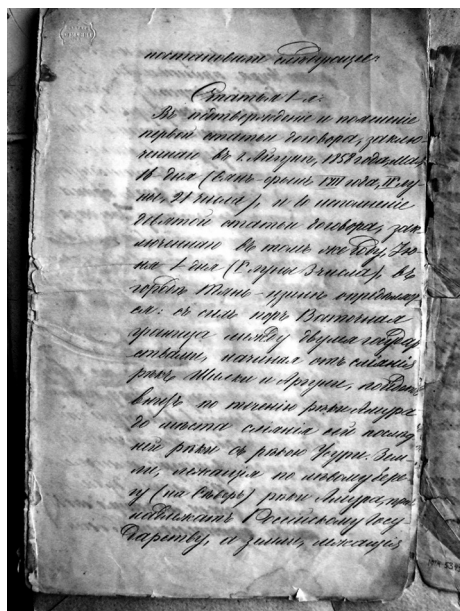 постановили слѣдующее:
Статья 1-я.
Въ подтвержденіе и поясненіе
первой статьи договора, заклю-
ченнаго въ г. Айгунѣ, 1858 года, мая
16 дня (Сянь-фынъ VIII года, IV лу-
ны, 21 числа), и во исполненіе
девятой статьи договора, зак-
люченнаго въ томъ же году, Ію-
ня 1 дня (V луны 3 числа), въ
городѣ Тянь-цзинѣ, опредѣляет-
ся: съ сихъ поръ Восточная
граница между двумя государ-
ствами, начиная отъ сліянія
рѣкъ Шилки и Аргуни, пойдетъ
внизъ по теченію рѣки Амура
до мѣста сліянія сей послѣд-
ней рѣки съ рѣкою Усури. Зем-
ли, лежащія по лѣвому бере-
гу (на сѣверъ) рѣки Амура, при-
надлежатъ Россійскому Госу-
дарству, а земли, лежащія